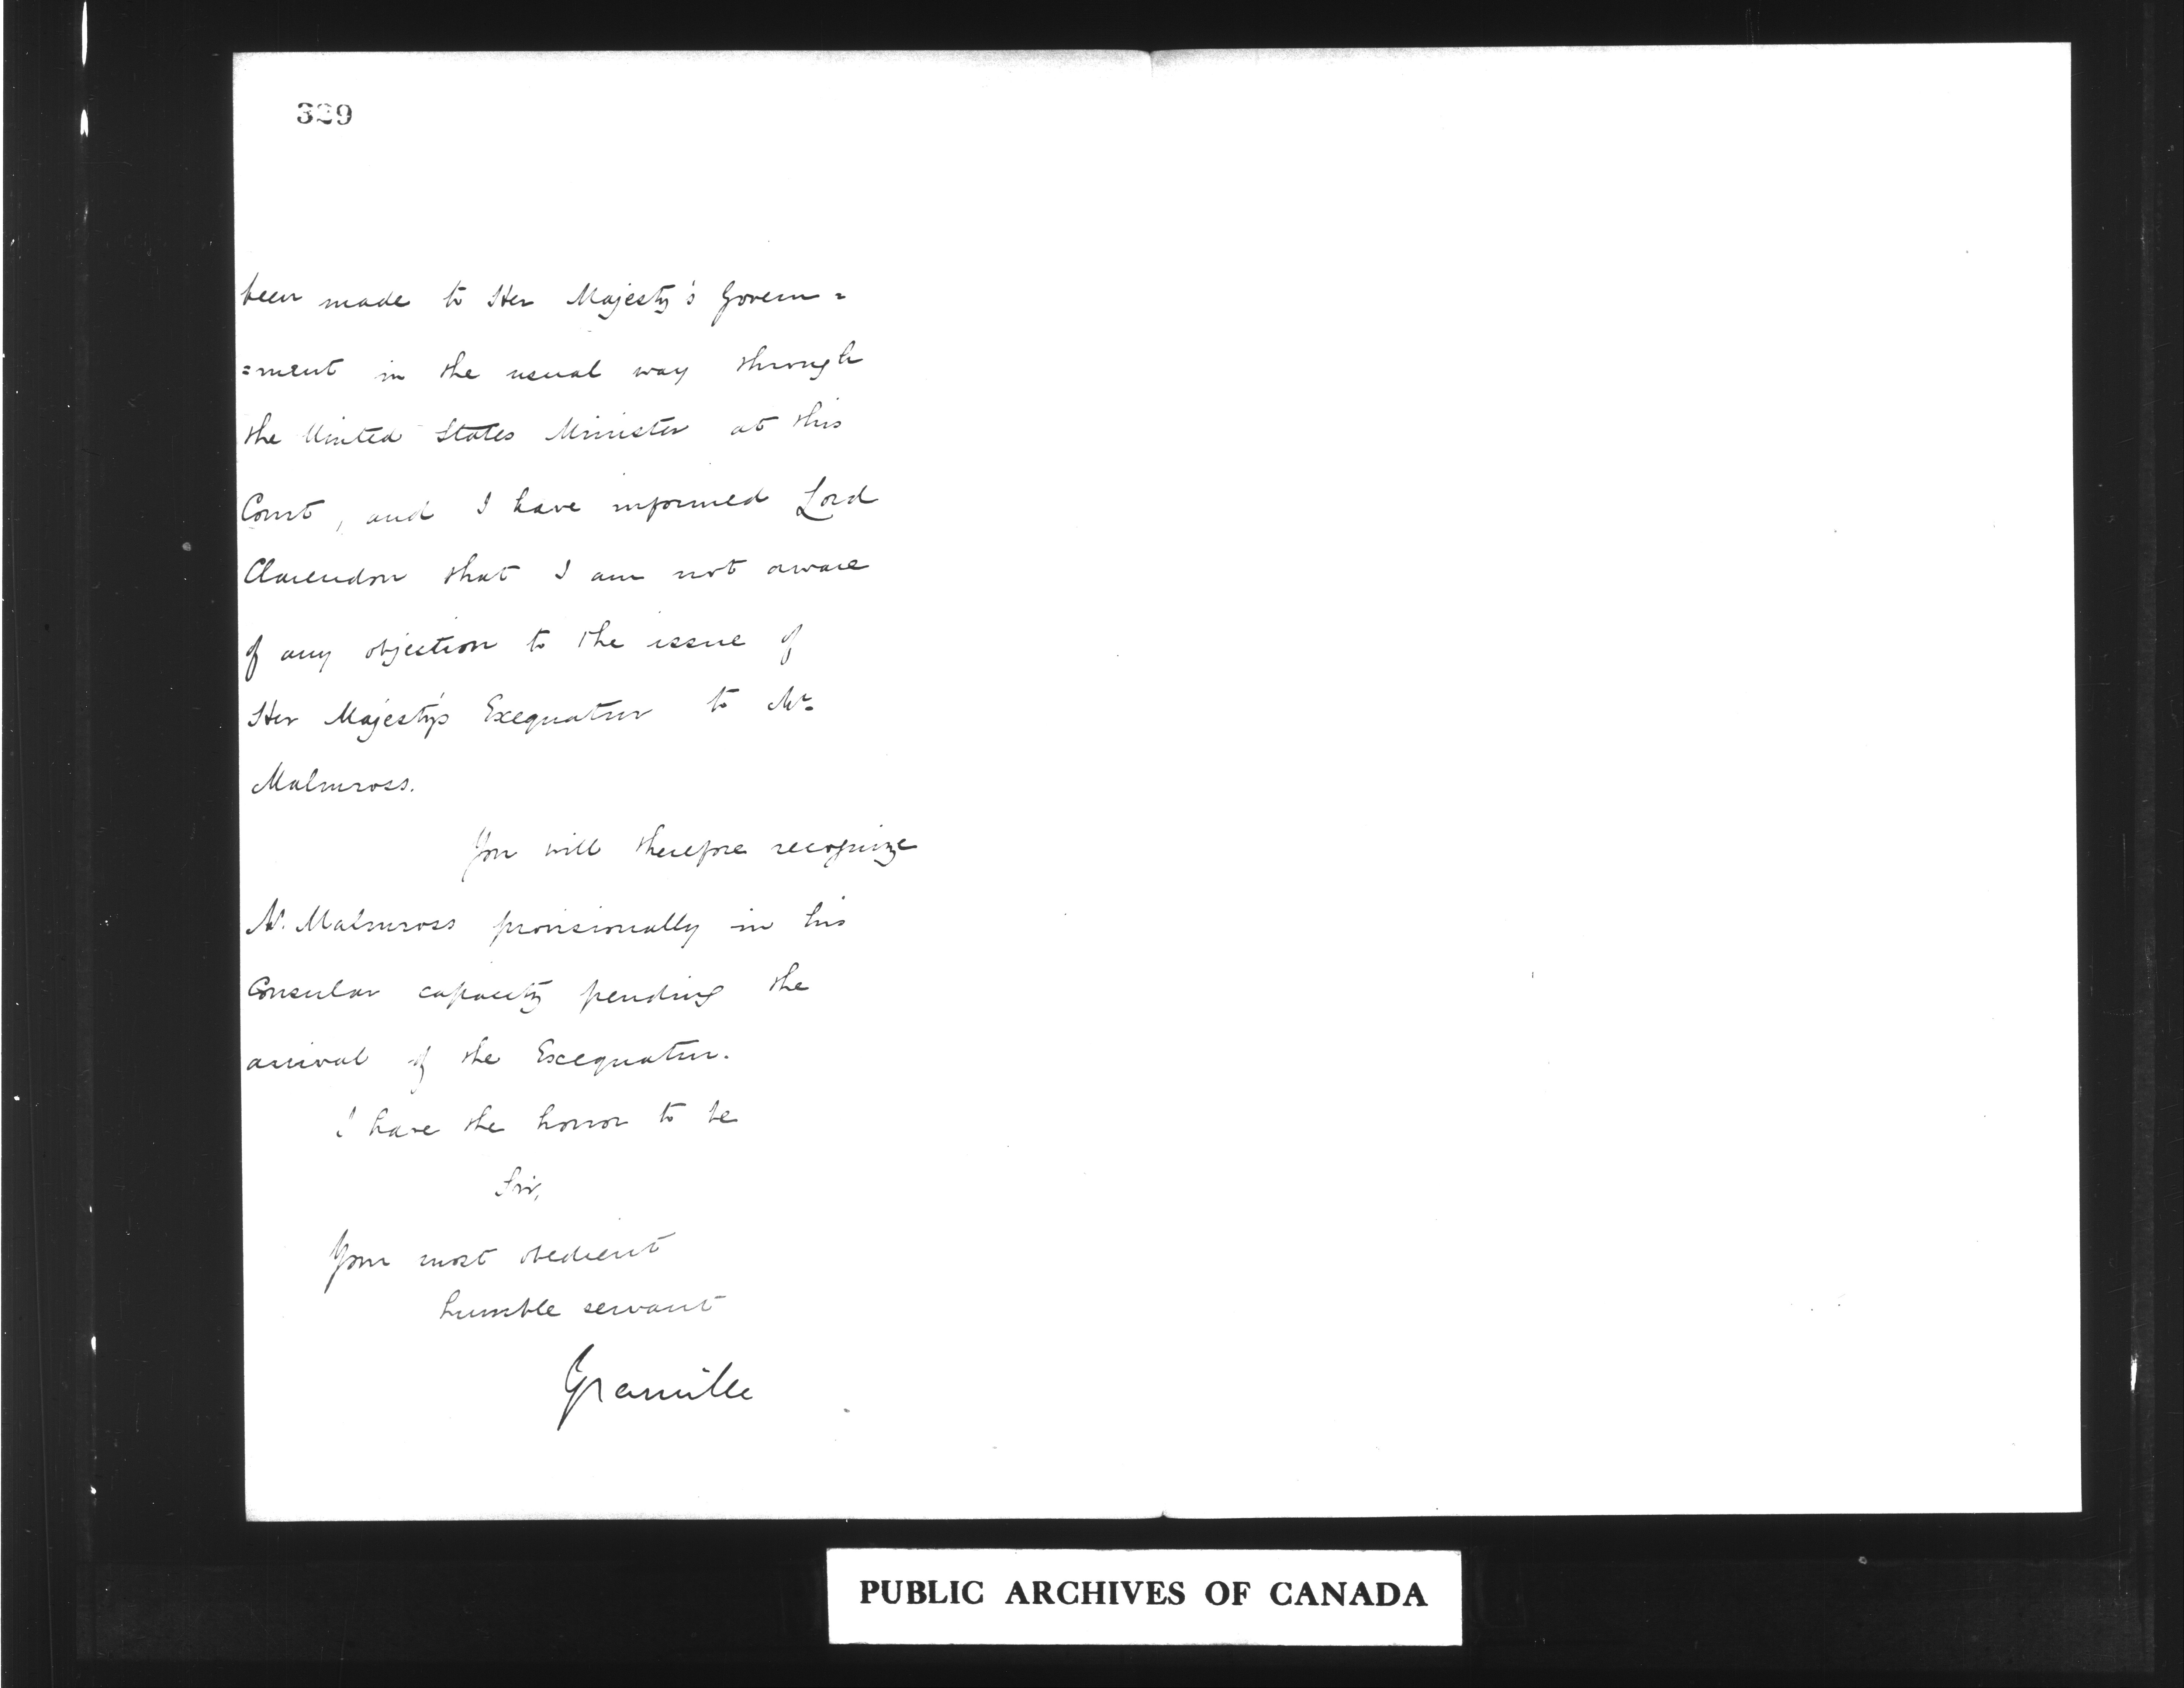 329
been made to Her Majesty's Govern=
=ment in the usual way through
the United States Minister at this
Court, and I have informed Lord
Clarendon that I am not aware
of any objection to the issue of
Her Majesty's Exequatur to Mr.
Malmross.
You will therefore recognize
Mr. Malmross provisionally in his
Consular capacity pending the
arrival of the Exequatur.
I have the honor to be
Sir,
Your most obedient
humble servant
Granville
PUBLIC ARCHIVES OF CANADA